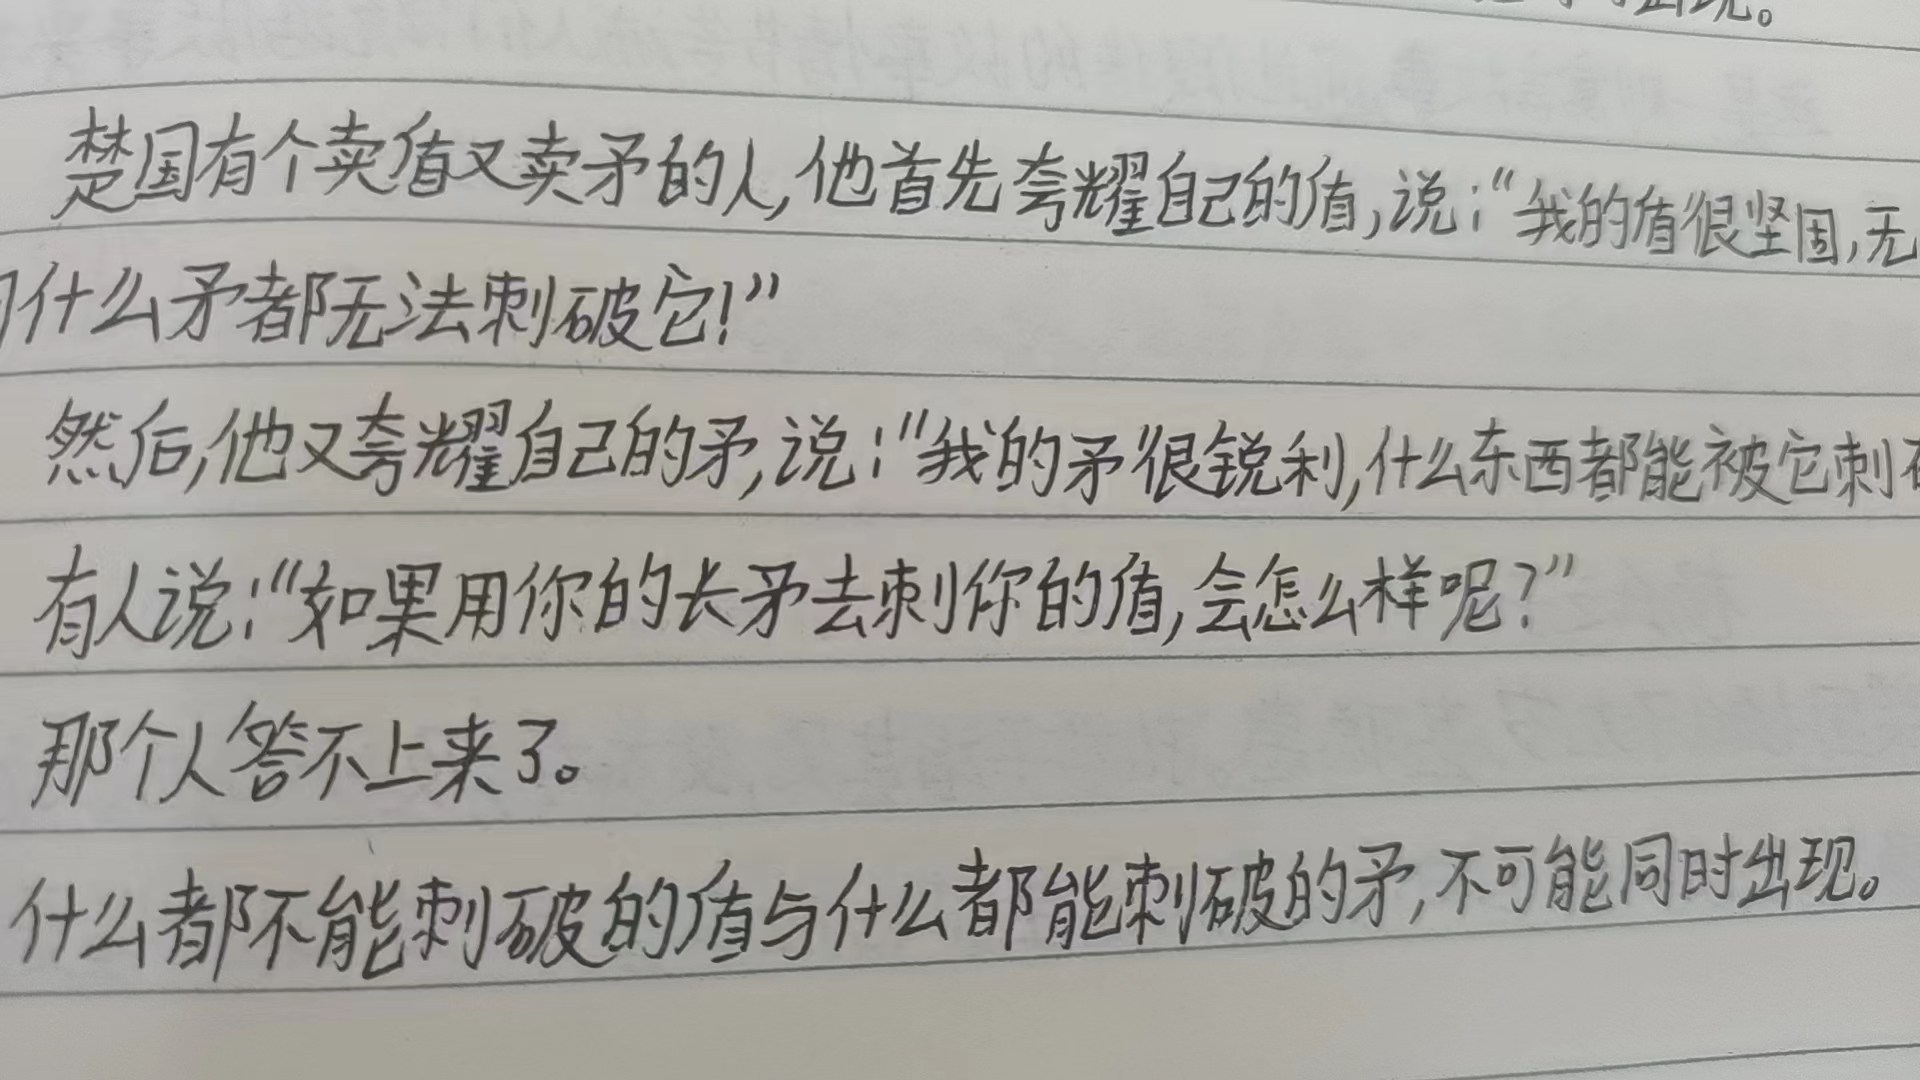 出现。
楚国有个卖盾又卖矛的人,他首先夸耀自己的盾,说:“我的盾很坚固,无
什么矛都无法刺破它!”
然后,他又夸耀自己的矛,说:“我的矛很锐利,什么东西都能被它刺
有人说:“如果用你的长矛去刺你的盾,会怎么样呢?”
那个人答不上来了。
什么都不能刺破的盾与什么都能刺破的矛,不可能同时出现。